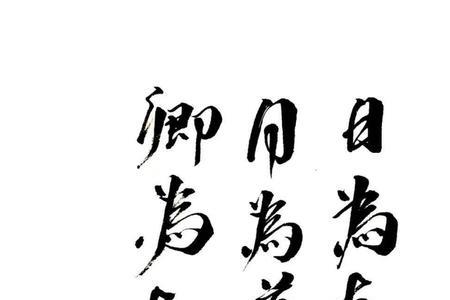 日為
月為
卿為